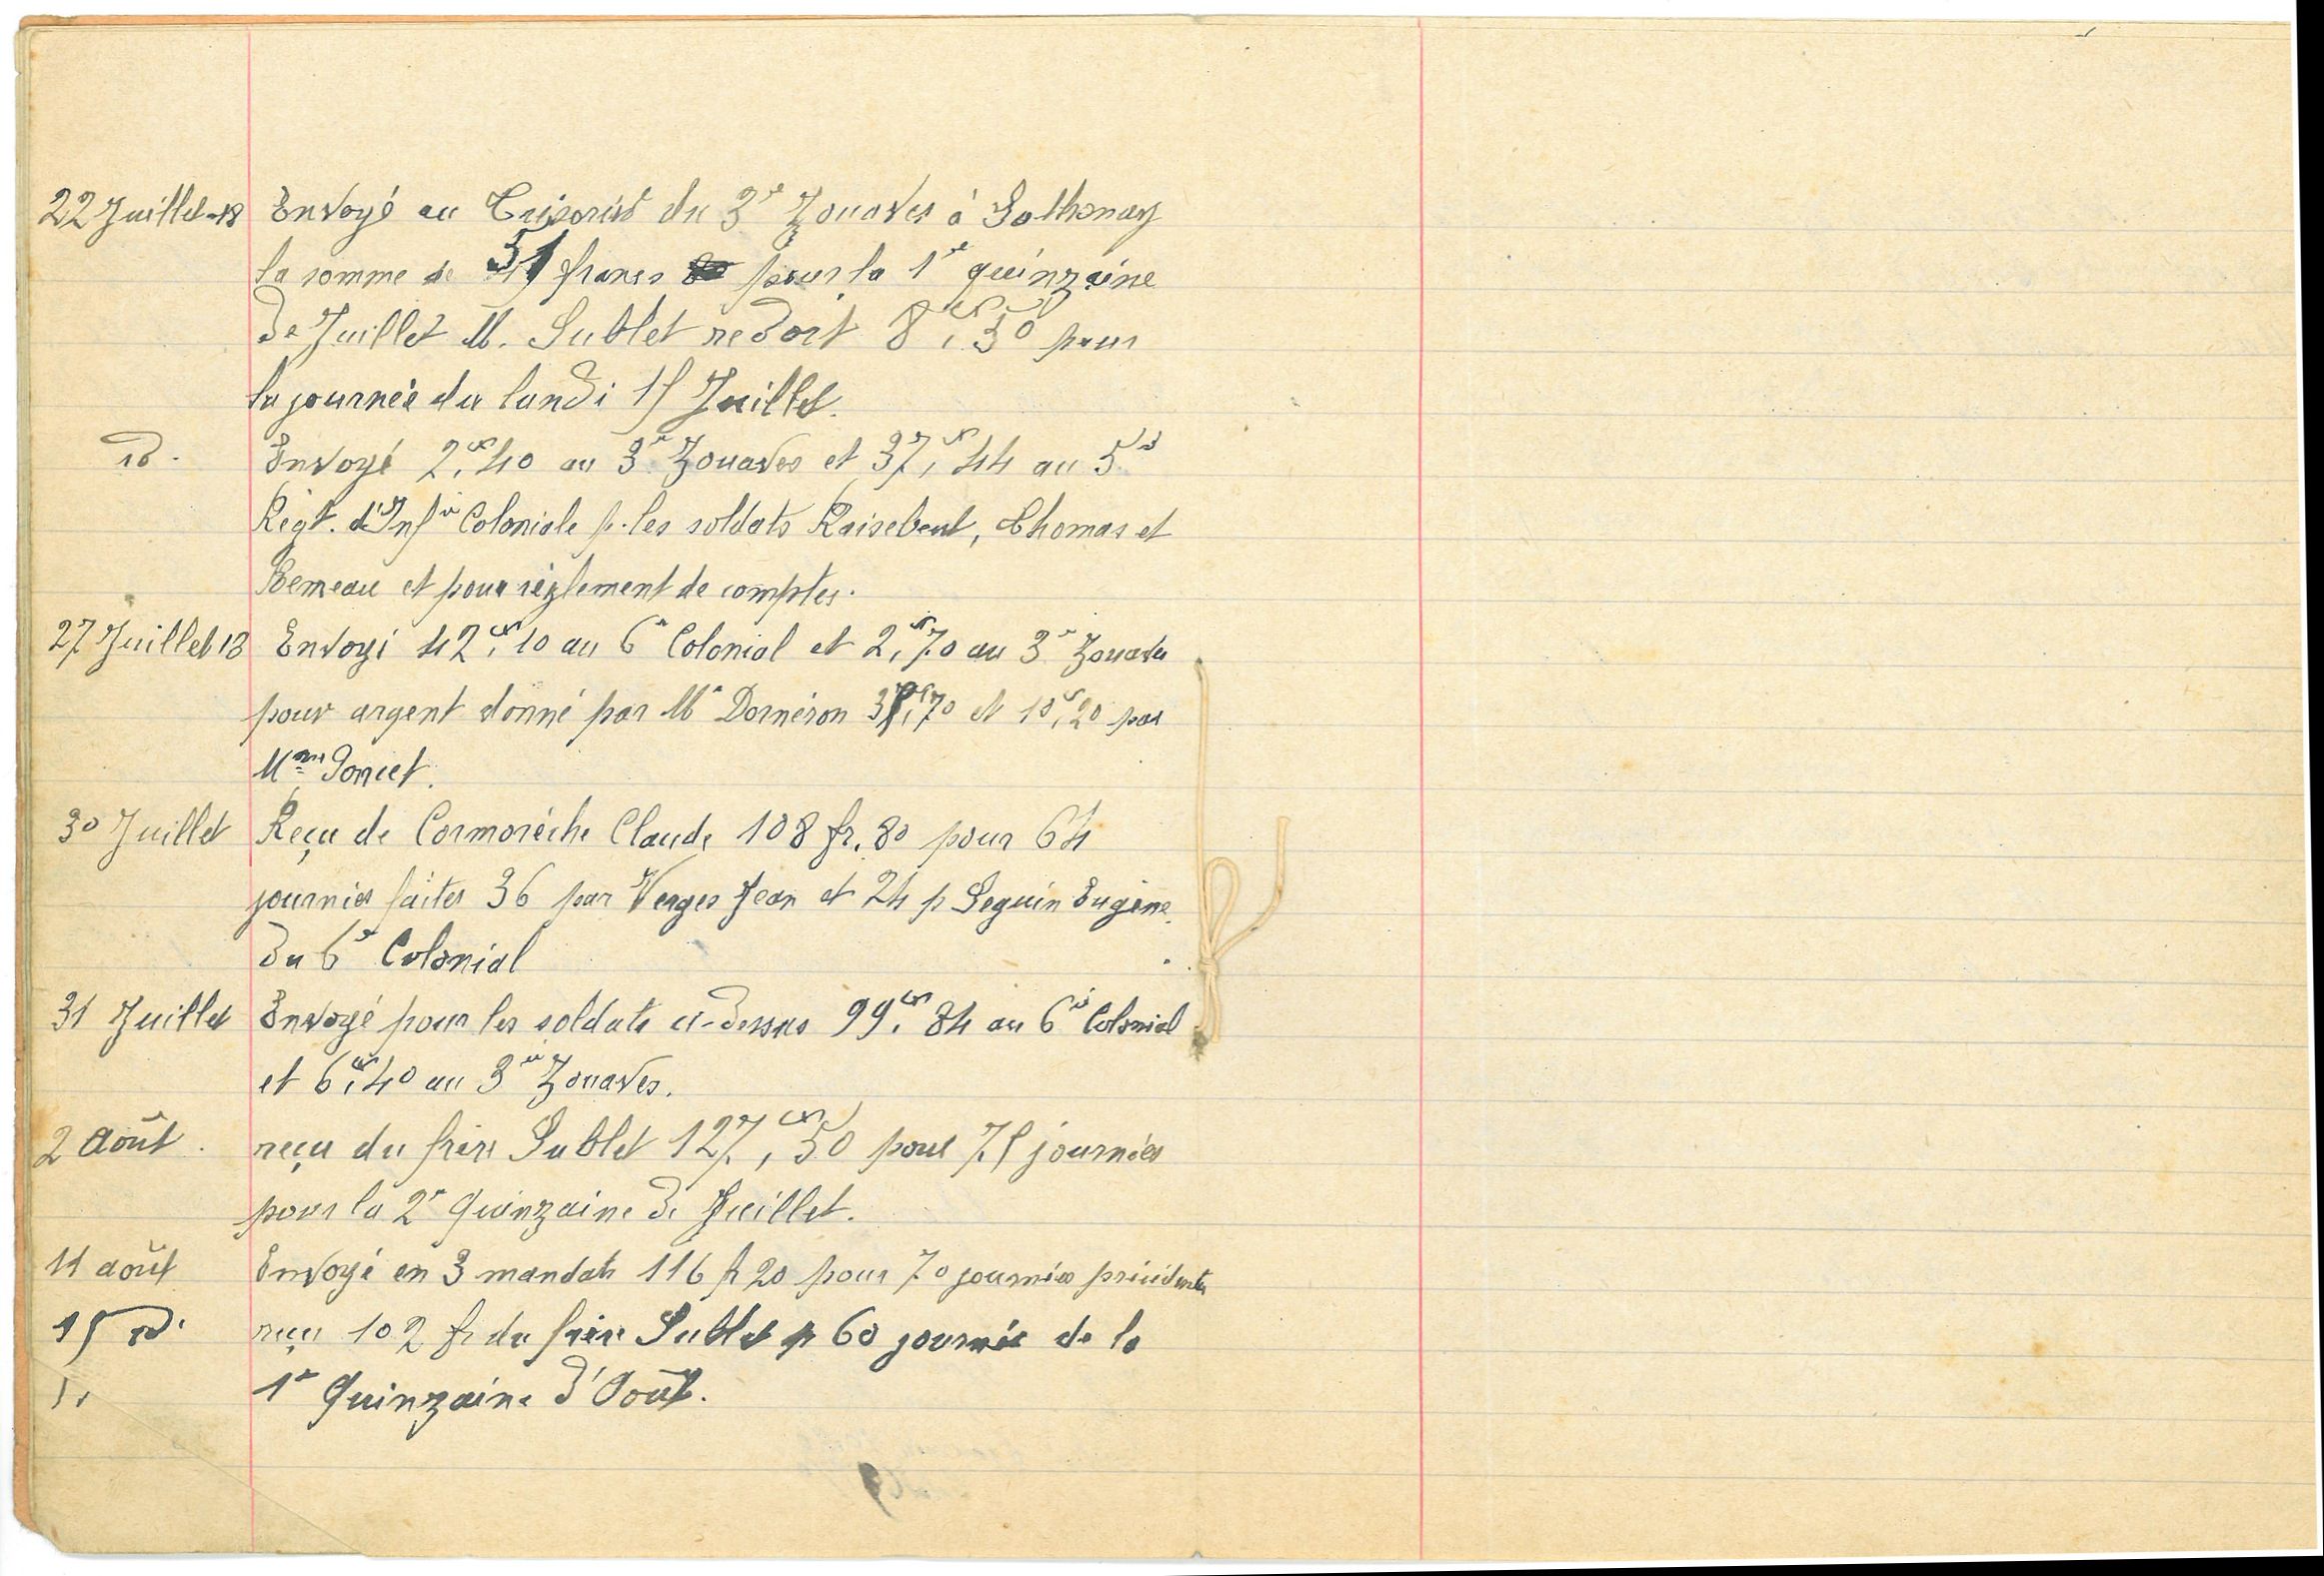 22 Juillet-18 Envoyé au Trésorier du 3e Zouaves à Sathonay
la somme de 51 francs pour la 1e quinzaine
de Juillet M. Sublet redoit 8frs,50 pour
la journée du lundi 15 Juillet.
id. Envoyé 2frs,40 au 3e Zouaves et 37,frs 44 au 5e
Régt. d'Infie Coloniale p. les soldats Raisebent, Thomas et
et pour règlement de comptes.
27 Juillet 18 Envoyé 42frs,10 au 6e Colonial et 2,frs70 au 3e Zouaves
pour argent donné par Mr Dornéron et 10frs,20 par
Mme Poncet.
30 Juillet Reçu de Cormorèche Claude 108 fr. 80 pour 64
journées faites 36 par Verges Jean et 24 p Seguin Eugène
du 6e Colonial
31 Juillet Envoyé pour les soldats ci-dessus 99frs, 84 au 6e Colonial
et 6frs,40 au 3e Zouaves.
2 Août. reçu du frère Sublet 127,frs 50 pour 75 journées
pour la 2e Quinzaine de Juillet.
11 août Envoyé en 3 mandats 116 fr 20 pour 70 journées précédentes
15 id. reçu 102 fr du frère Sublet p 60 journée de la
1e Quinzaine d'Août.